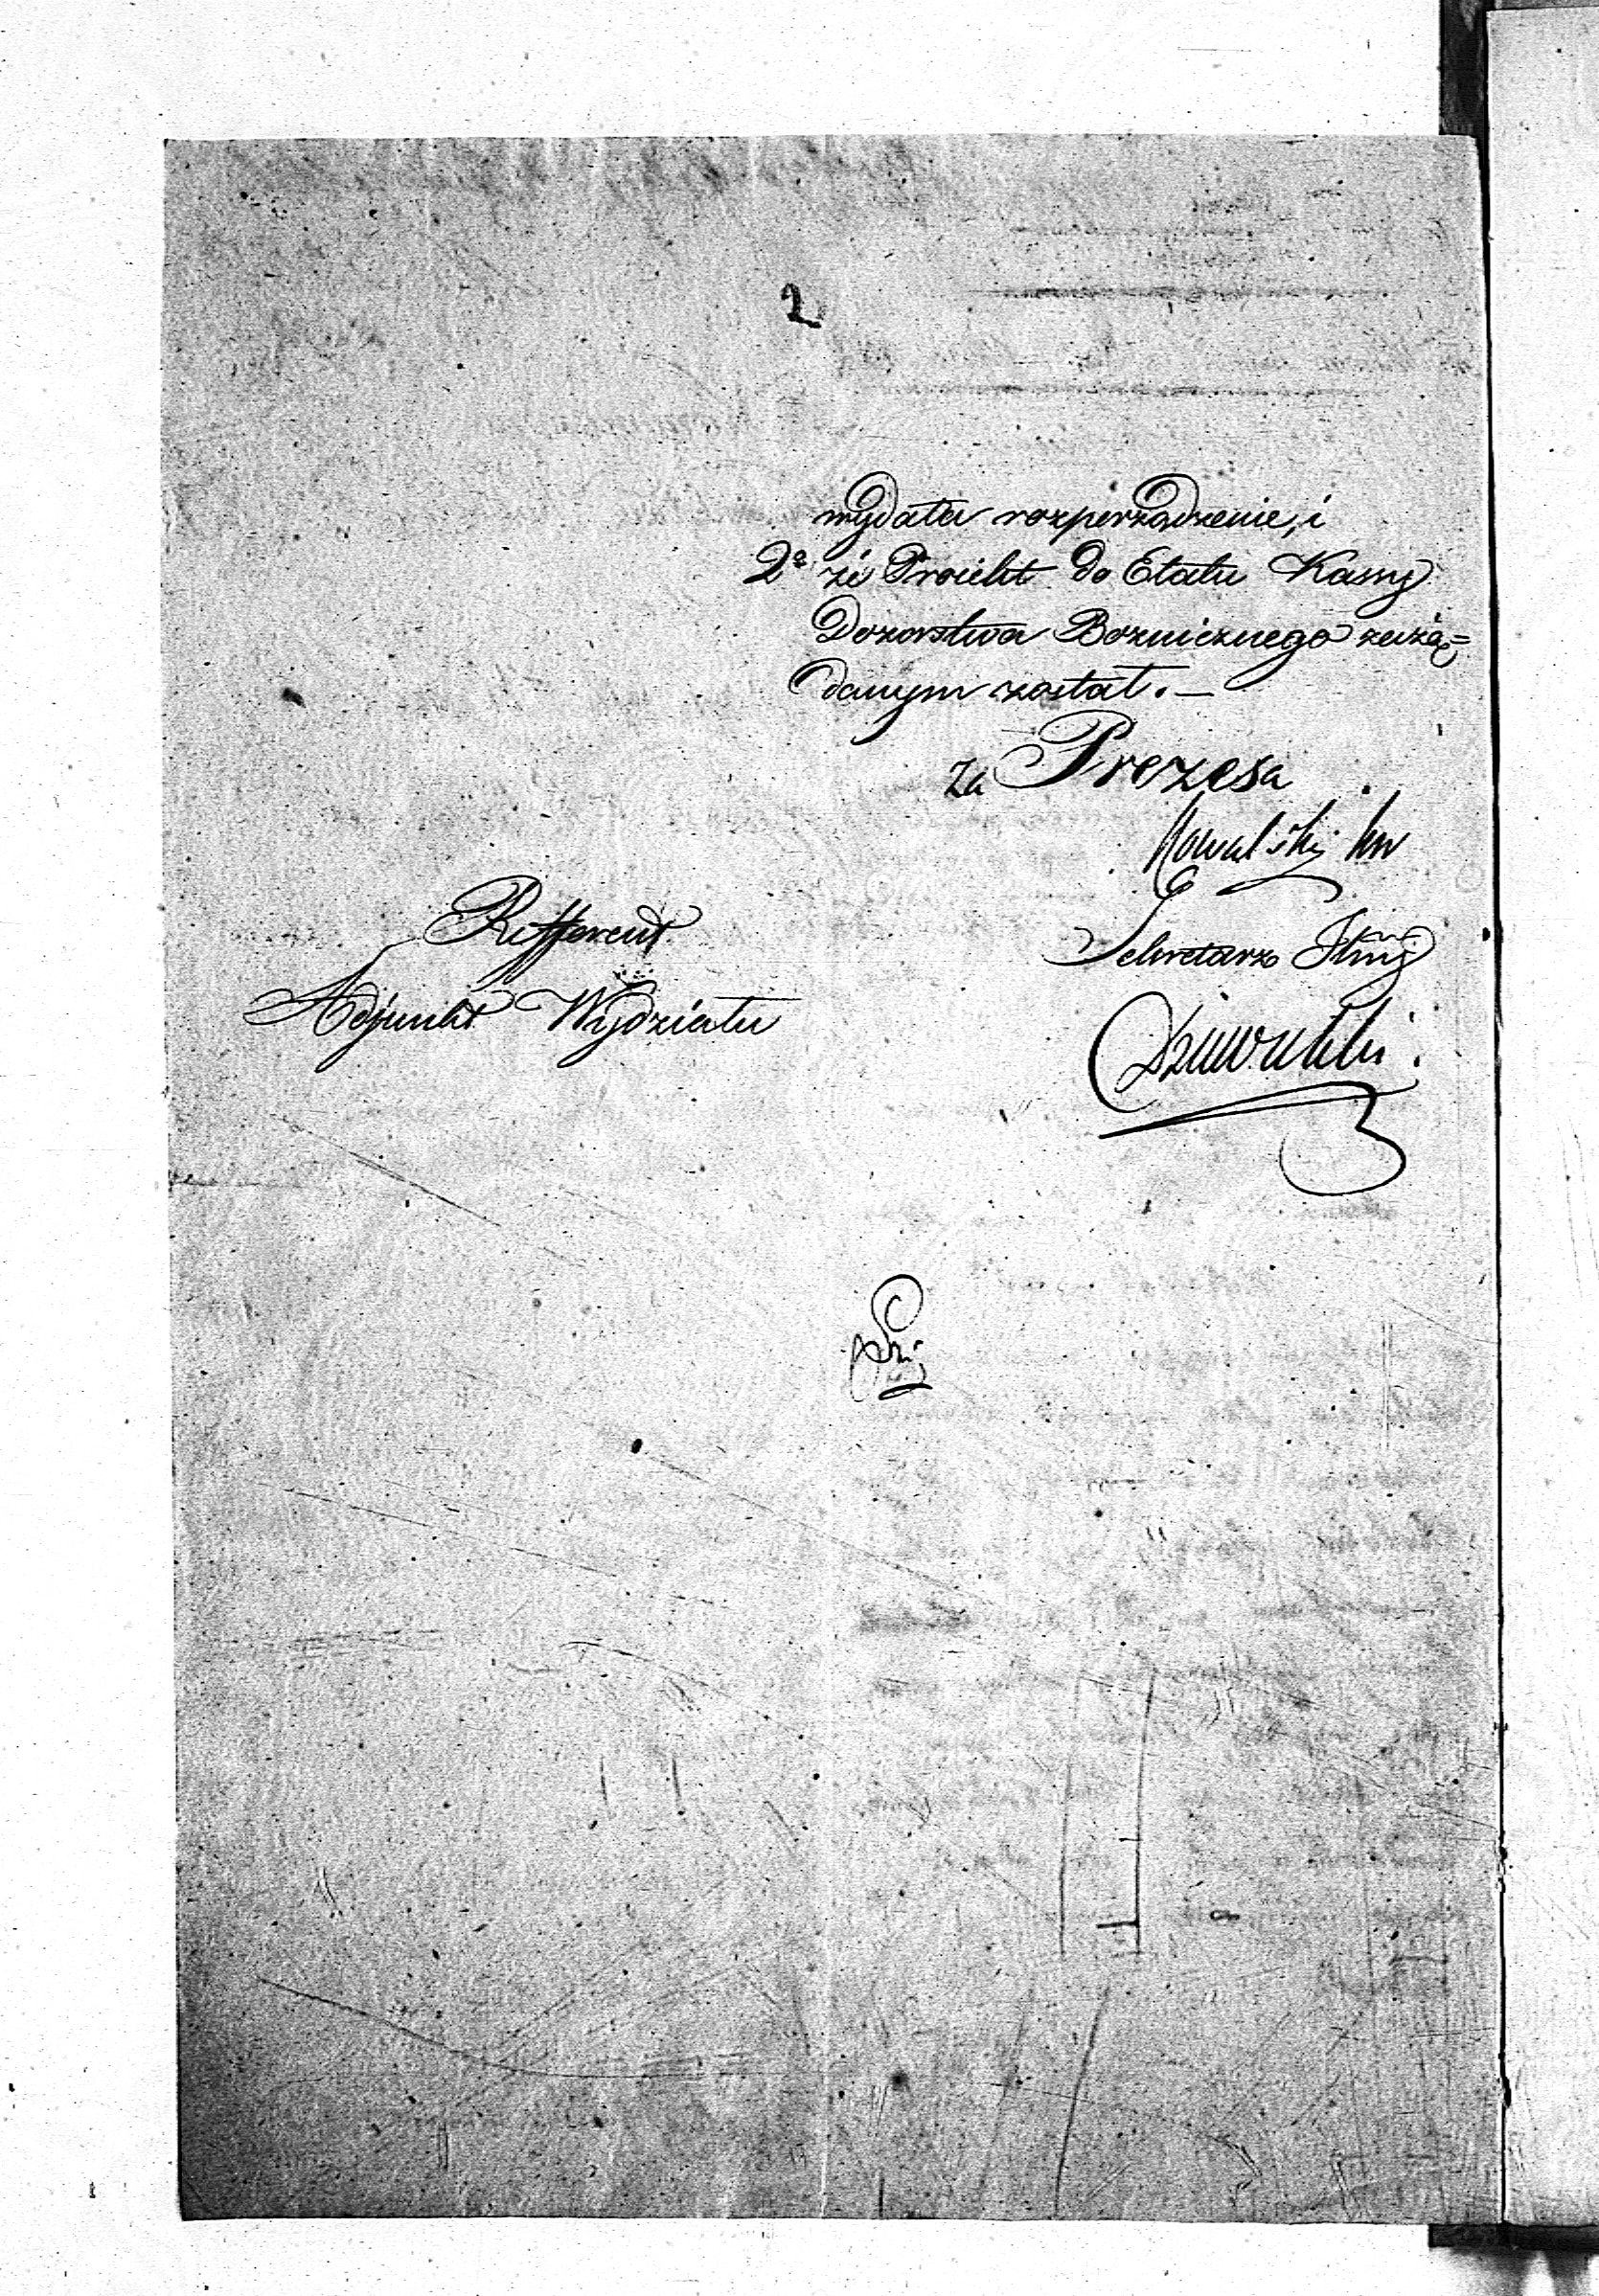 2
wydała rozporządzenie, i
2º że Proiekt do Etatu Kassy
Dozorstwa Bożnicznego zażą=
danym został. —
Za Prezesa
Kowalski
Sekretarz
Refferent
Adjunkt Wydziału